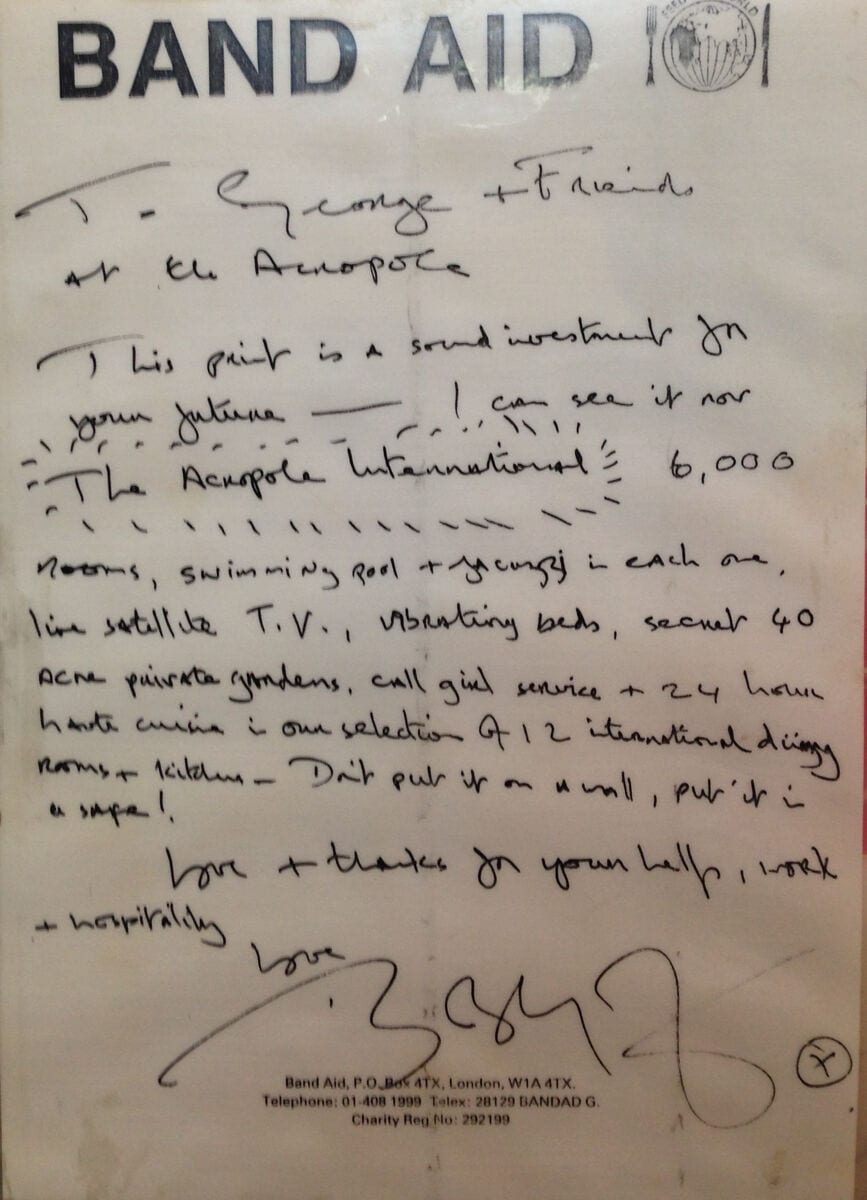 BAND AID
FEED THE WORLD
To George + Friends
at the Acropole
This print is a sound investment for
your future — I can see it now
The Acropole International 6,000
rooms, swimming pool + jacuzzi in each one,
live satellite T.V., vibrating beds, secret 40
acre private gardens, call girl service + 24 hour
haute cuisine in our selection of 12 international dining
rooms + kitchen – Don't put it on a wall, put it in
a safe!
Love + thanks for your help, work
+ hospitality
Love
Band Aid, P.O. Box 4TX, London, W1A 4TX.
Telephone: 01-408 1999 Telex: 28129 BANDAD G.
Charity Reg No: 292199